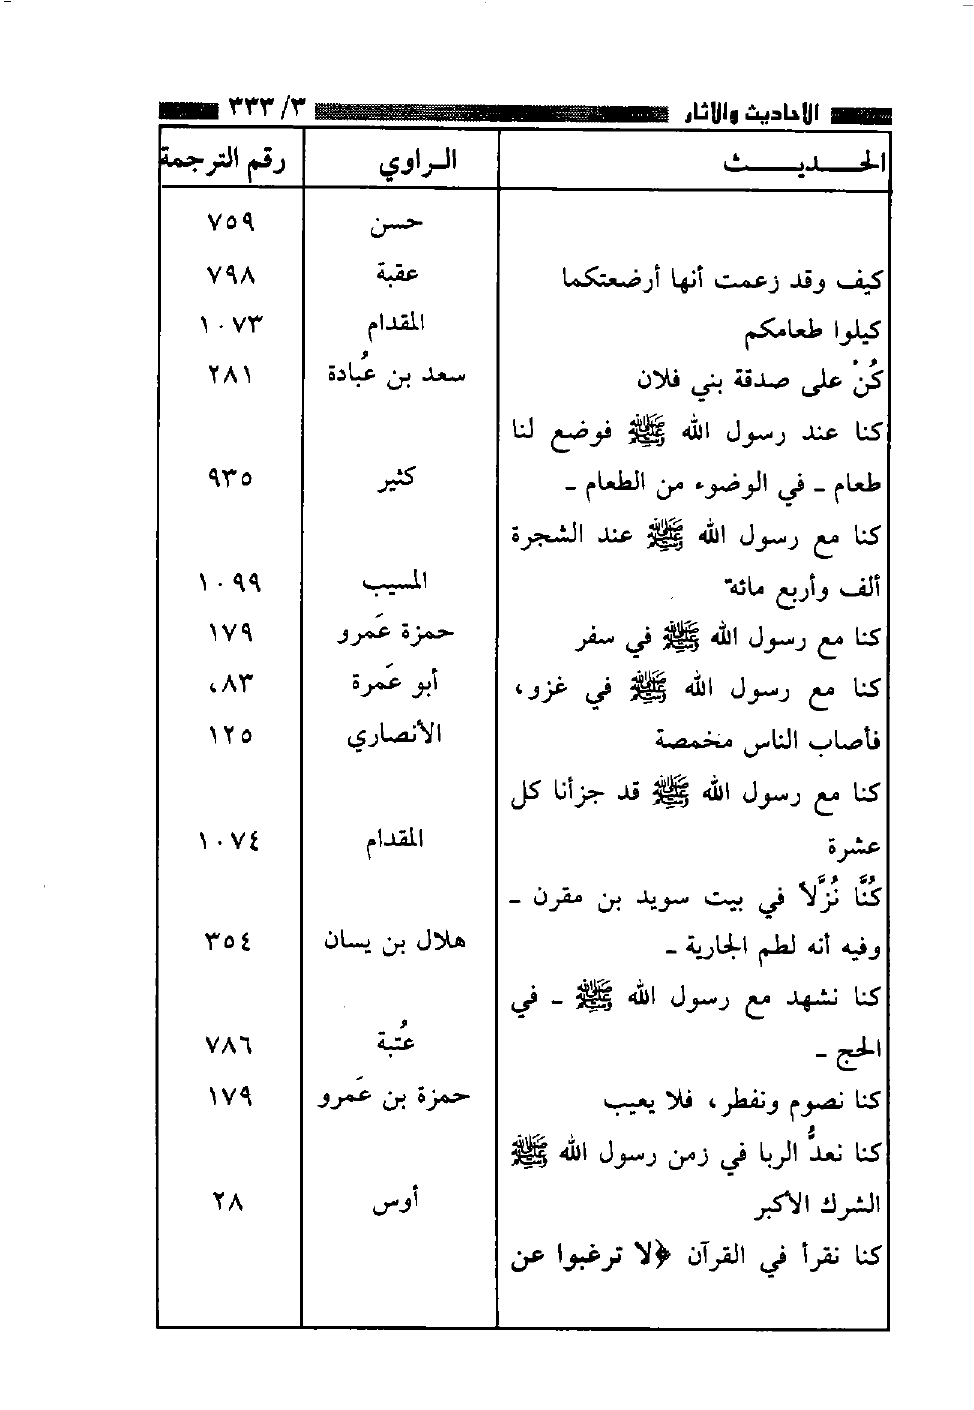 الأحاديث والآثار ٣/ ٣٣٣
الحـــديـــث الـراوي رقم الترجمة
حسن ٧٥٩
كيف وقد زعمت أنها أرضعتكما عقبة ٧٩٨
كيلوا طعامكم المقدام ١٠٧٣
كُنْ على صدقة بني فلان سعد بن عُبادة ٢٨١
كنا عند رسول الله ﷺ فوضع لنا
طعام ـ في الوضوء من الطعام ـ كثير ٩٣٥
كنا مع رسول الله ﷺ عند الشجرة
ألف وأربع مائة المسيب ١٠٩٩
كنا مع رسول الله ﷺ في سفر حمزة عَمرو ١٧٩
كنا مع رسول الله ﷺ في غزو، أبو عَمرة ٨٣،
فأصاب الناس مخمصة الأنصاري ١٢٥
كنا مع رسول الله ﷺ قد جزأنا كل
عشرة المقدام ١٠٧٤
كُنَّا نُزَّلاً في بيت سويد بن مقرن ـ
وفيه أنه لطم الجارية ـ هلال بن يسان ٣٥٤
كنا نشهد مع رسول الله ﷺ ـ في
الحج ـ عُتبة ٧٨٦
كنا نصوم ونفطر، فلا يعيب حمزة بن عَمرو ١٧٩
كنا نعدُّ الربا في زمن رسول الله ﷺ
الشرك الأكبر أوس ٢٨
كنا نقرأ في القرآن ﴿لا ترغبوا عن